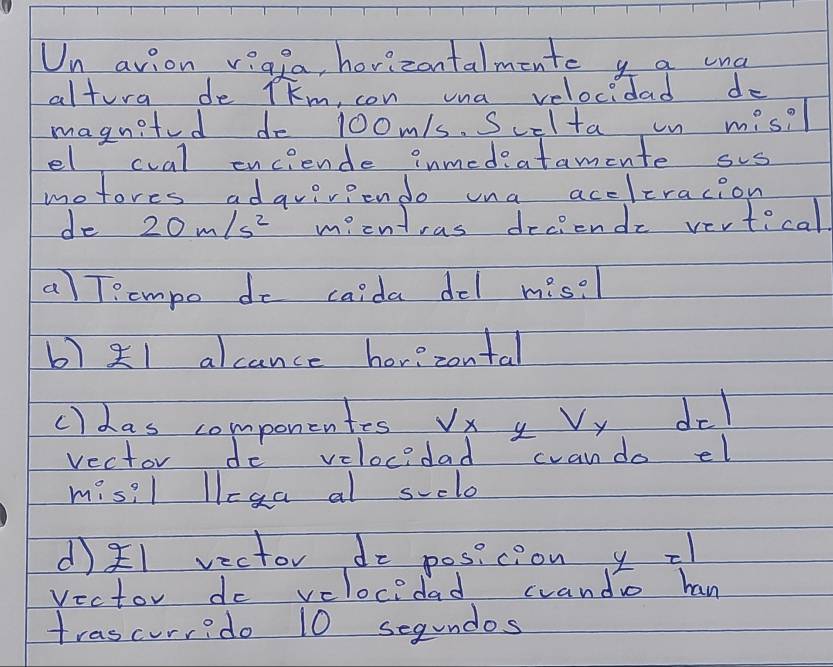 Un avion viaja, horizontalmente y a una
altura de 1Km, con una velocidad de
magnitud de 100m/s. Suelta un misil
el cual enciende inmediatamente sus
motores adquiriendo una aceleracion
de 20m/s² mientras deciende vertical.
a) Tiempo de caida del misil
b) El alcance horizontal
c) Las componentes Vx y Vy del
vector de velocidad cuando el
misil llega al suelo
d) El vector de posicion y el
vector de velocidad cuando han
trascurrido 10 segundos